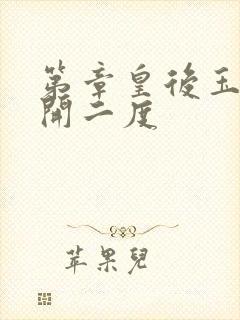 第章皇後玉
開二度
苹果兒